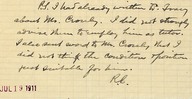 P.S. I had already written to Tracy
about Mr. Crowly. I did not strongly
advise them to employ him as tutor.
I also sent word to Mr. Crowly that I
did not think the condition of affairs
just suitable for him.
R.C.
JUL 19 1911